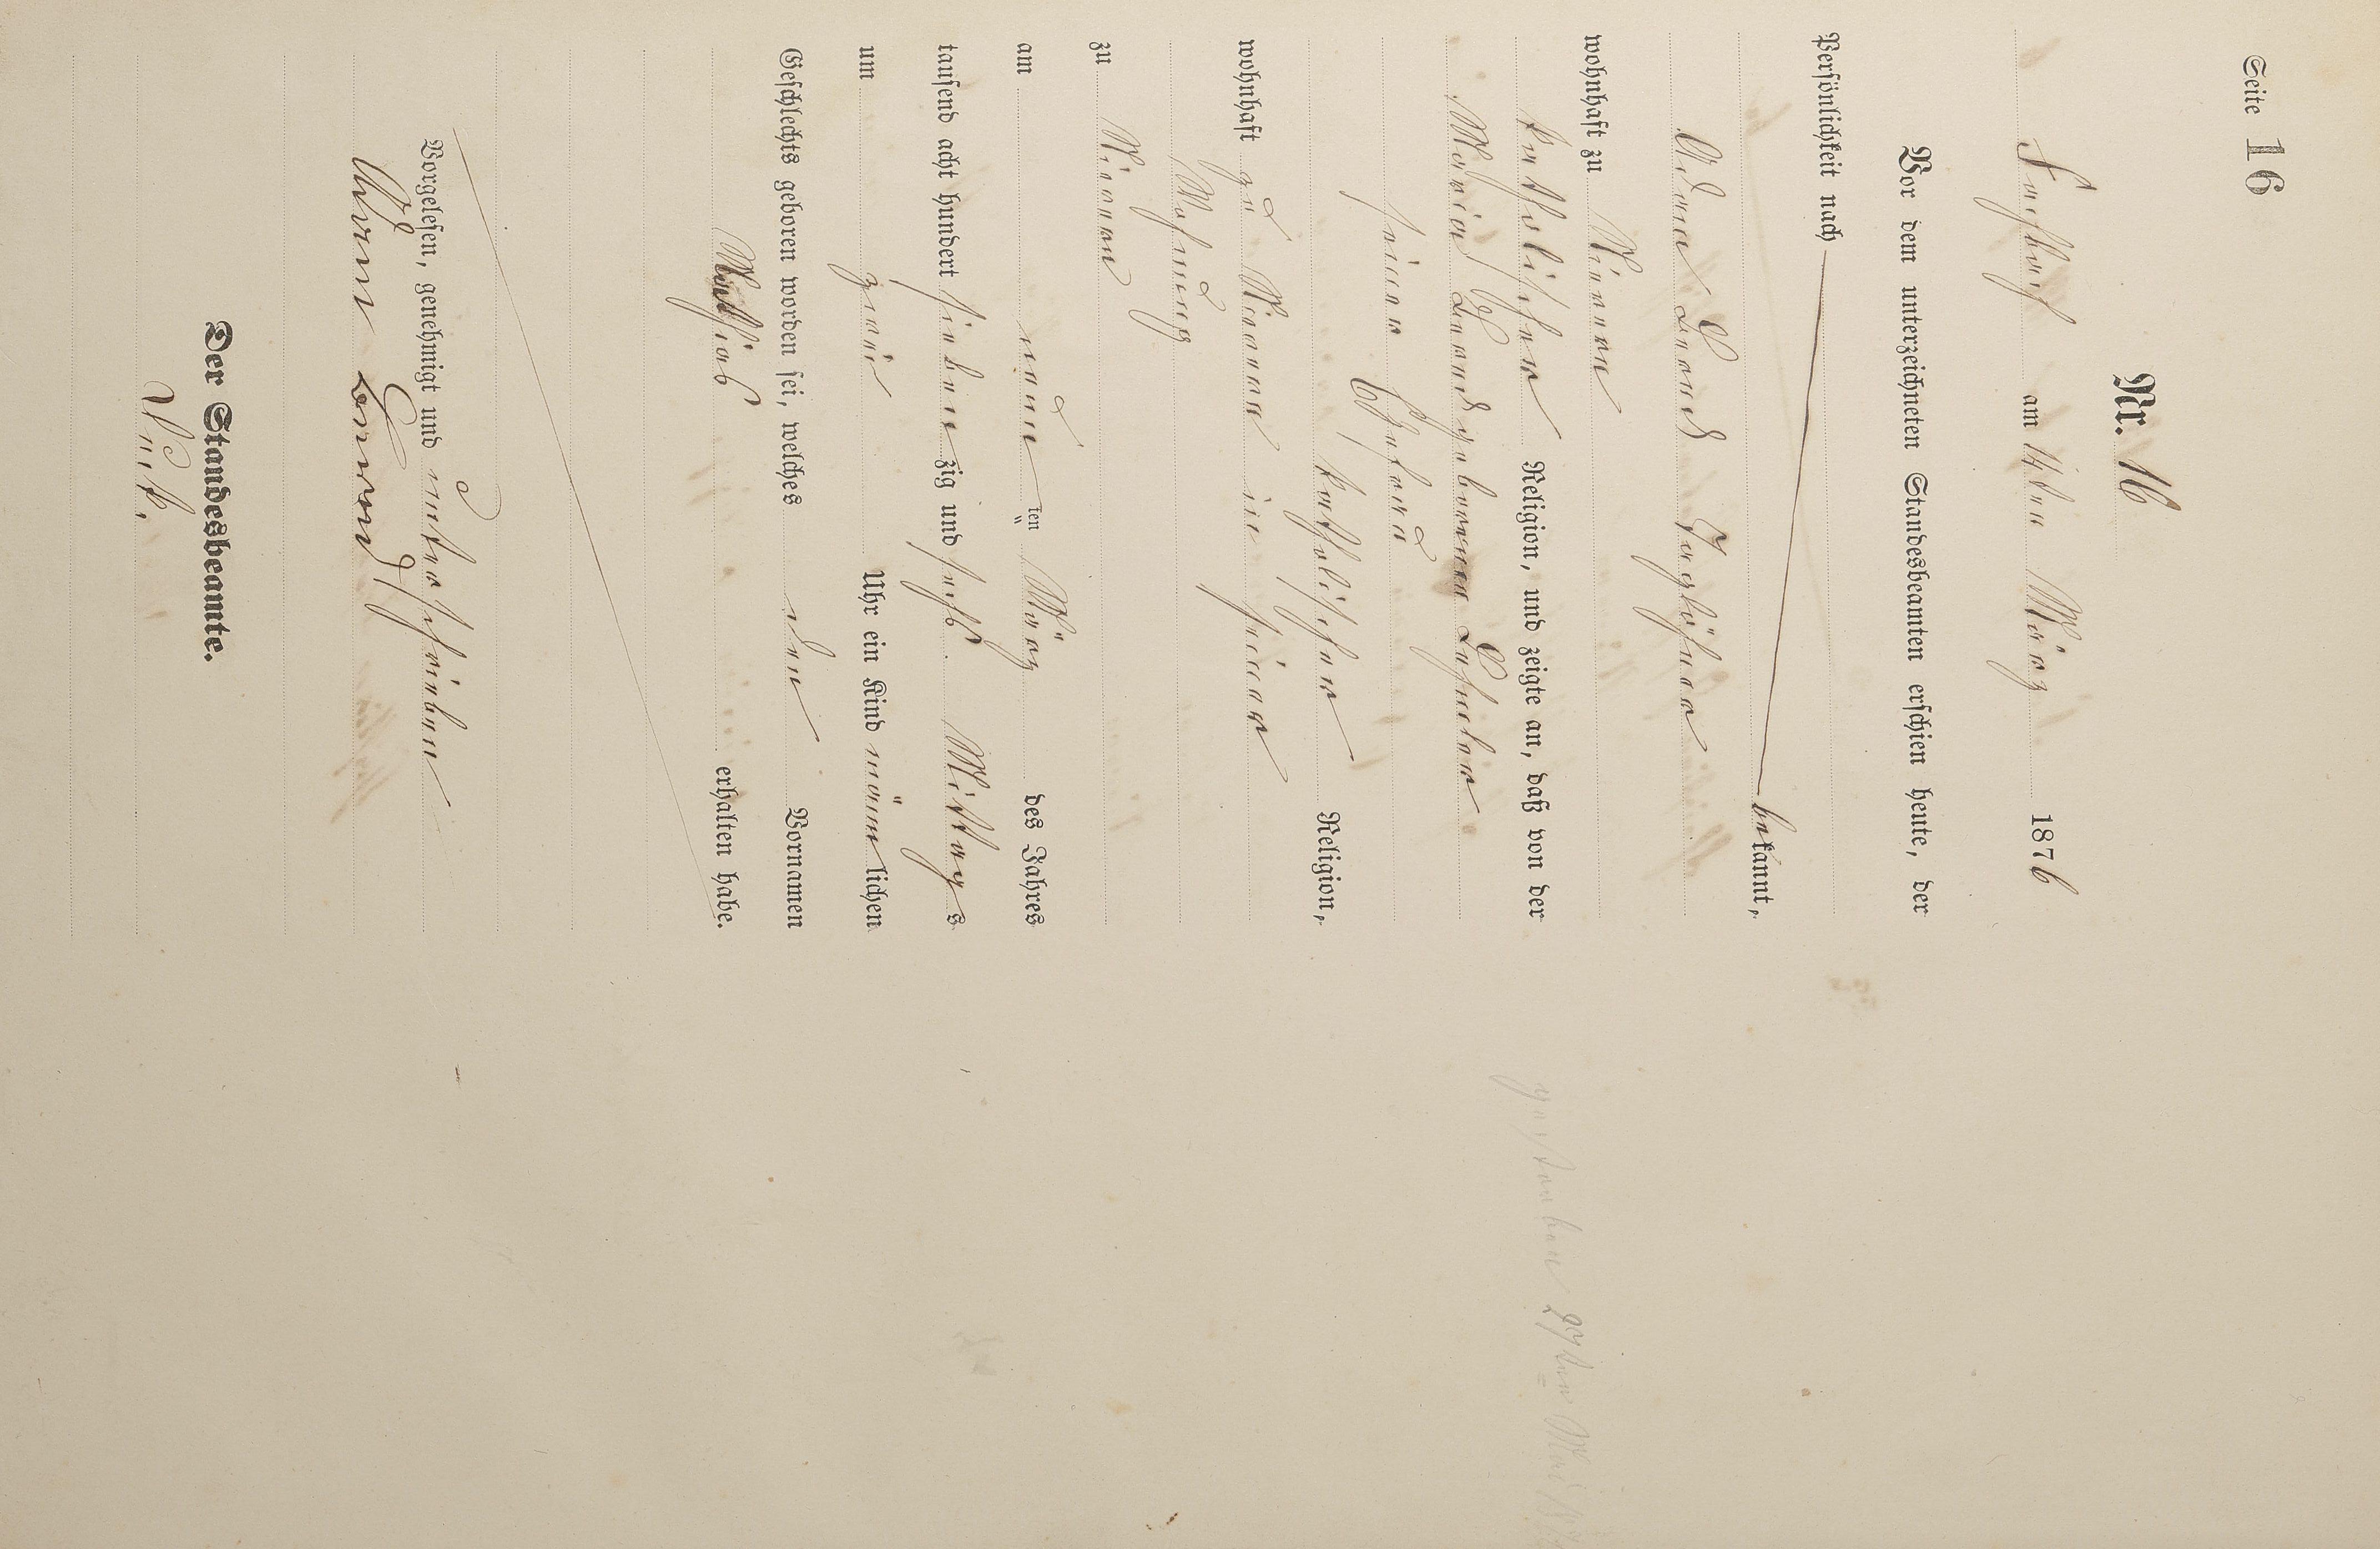 Seite 16
Nr. 16
am 14ten März 1876
Vor dem unterzeichneten Standesbeamten erschien heute, der
Persönlichkeit nach
bekannt,
Adam
wohnhaft zu
katholischer Religion, und zeigte an, daß von der
Maria geborenen
seiner Ehefrau
katholischer Religion,
wohnhaft zu in seiner
Wohnung
zu
am neun ten März des Jahres
tausend acht hundert siebenzig und sechs Mittags
um zwei Uhr ein Kind männlichen
Geschlechts geboren worden sei, welches den Vornamen
Mathias erhalten habe.
Vorgelesen, genehmigt und unterschrieben
Der Standesbeamte.
gestorben 27ten Mai